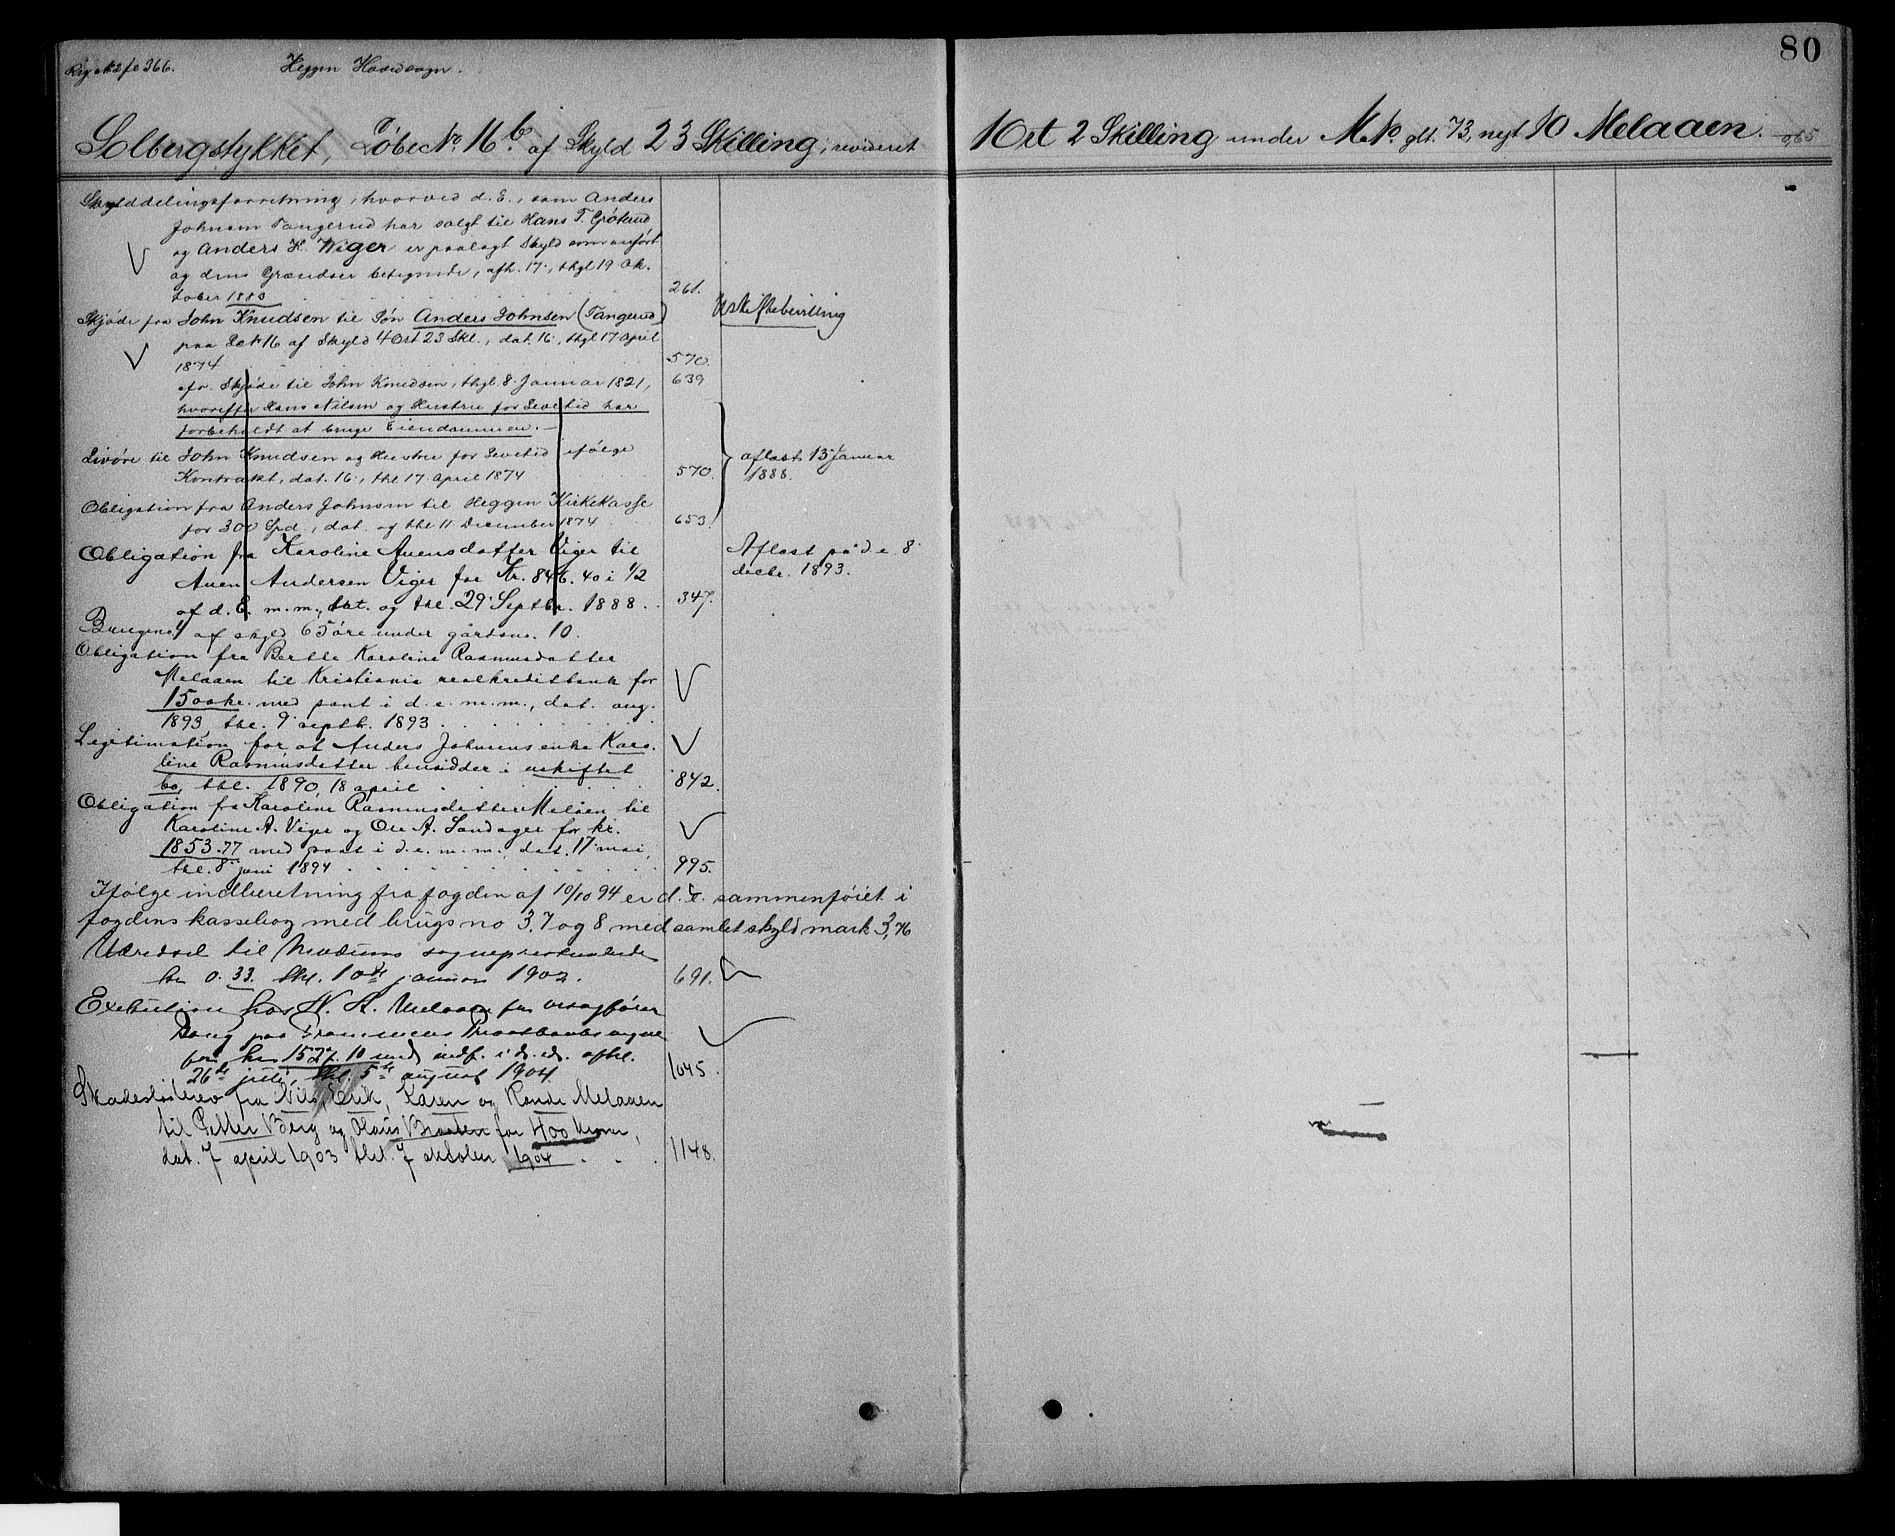 Reg. No 2 fo 366.
Heggen Hovedsogn.
80
Solbergstykket, LøbeNo. 16b af Skyld 23 Skilling, revideret 1 Ort 2 Skilling under M.No. glt. 73, nyt 10 Melaaen.
0,65
Skylddelingsforretning, hvorved d. E., som Anders
Johnsen Tangerud har solgt til Hans T. Grøterud
og Anders H. Wiger er paalagt Skyld som anført
og dens Grændser betegnede, afh. 17., thgl 19 Ok-
tober 1880 . . . 261.
Skjøde fra John Knudsen til Søn Anders Johnsen (Tangerud)
Uskiftebevilling
paa LøNo 16 af Skyld 4 Ort 23 Skl., dat. 16., thgl 17 April
1874 . . . 570.
cfr. Skjøde til John Knudsen, thgl 8. Januar 1821, 639
hvorefter Hans Nilsen og Hustrue for Levetid har
forbeholdt at bruge Eiendommen. —
Livøre til John Knudsen og Hustrue for Levetid ifølge
Kontrakt, dat. 16., thl 17. April 1874 570.
aflæst 13 Januar
1888.
Obligation fra Anders Johnsen til Heggen Kirkekasse
for 300 Spd., dat. og thl 11. December 1874 . . 653.
Obligation fra Karoline Auensdatter Viger til
Auen Andersen Viger for Kr. 846.40 i 1/2
af d. E. m. m., dat. og thl. 29. Septbr. 1888. . 347.
Aflæst på d. e. 8.
decbr. 1893.
Brugsno. af skyld 65 øre under gårdsno. 10.
Obligation fra Berthe Karoline Rasmusdatter
Melaaen til Kristiania realkreditbank for
1500 kr. med pant i d. e. m. m., dat. aug.
1893, thl. 9. septb. 1893 . . .
Legitimation for at Anders Johnsens enke Karo-
line Rasmusdatter hensidder i uskiftet
bo, thl. 1890, 18 april . . . 842.
Obligation fr Karoline Rasmusdatter Melåen til
Karoline A. Viger og Ole A. Sandager for kr.
1853.77 med pant i d. e. m. m. dat. 17. mai,
thl. 8. juni 1894 . . . 995.
Ifølge indberetning fra fogden af 10/10 94 er d. e. sammenføiet i
fogdens kassebog med brugs no 3, 7 og 8 med samlet skyld mark 3,76
Udredsel til Modums sognepræstembede
kr 0.33. thl. 10de januar 1902. 691.
Exekution hos N. A. Melaaen for overagfører
paa Drammens Privatbanks vegne
for kr 1527.10 med indf. i d. ed. afhl.
26de juli, thl. 5te august 1904 1045.
Skadesløsbrev fra Nils, Erik, Karen og Randi Melaaen
til Petter Berg og Olaus Braaten for 400 kroner,
dat. 7 april 1903 thl. 7 oktober 1904 . . . 1148.